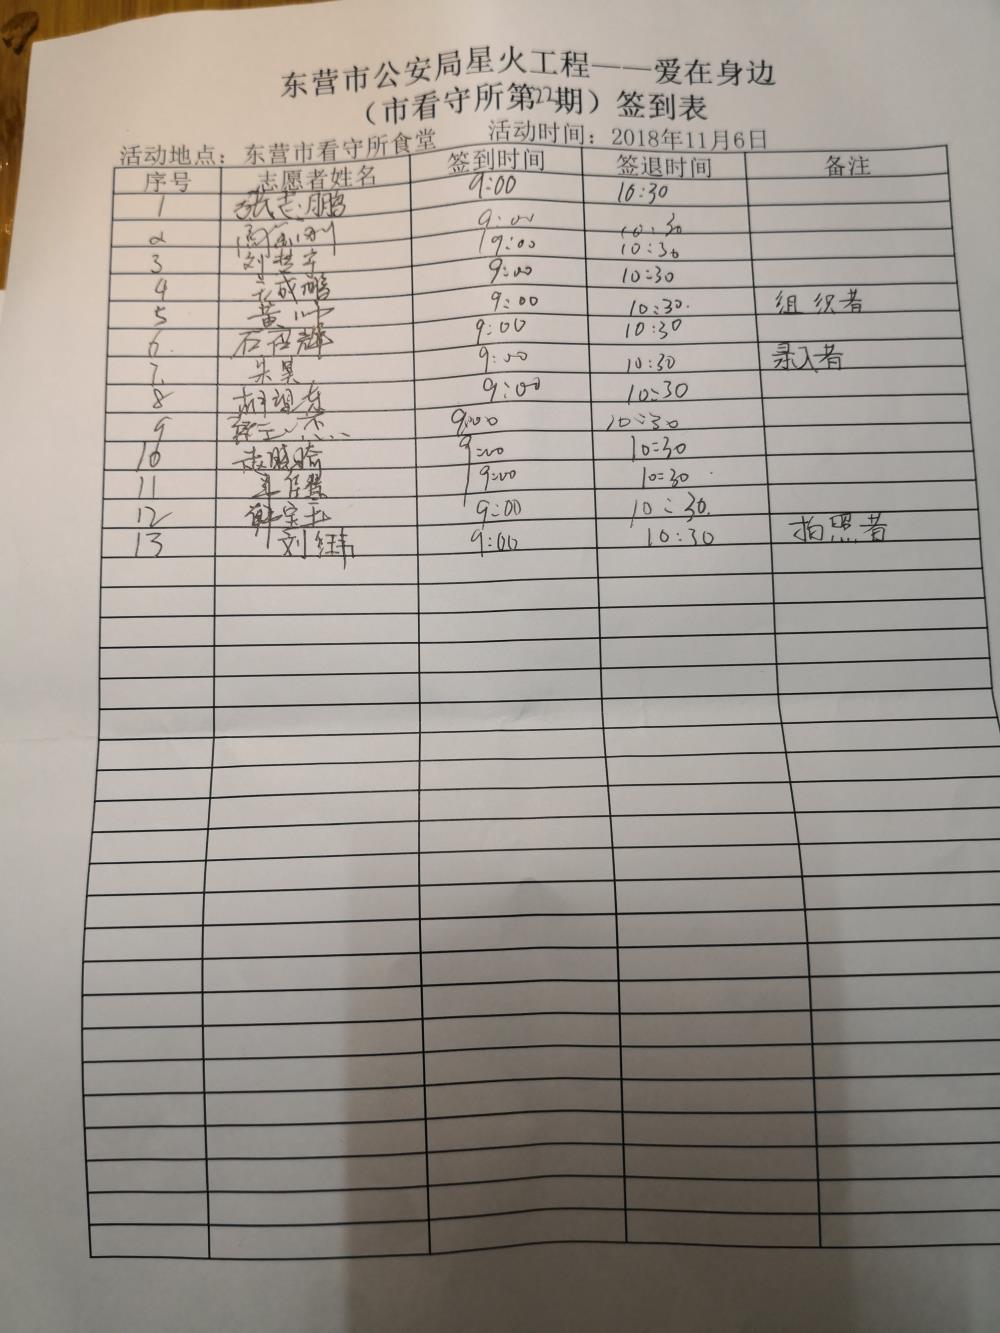 东营市公安局星火工程——爱在身边
（市看守所第22期）签到表
活动地点：东营市看守所食堂 活动时间：2018年11月6日
序号 志愿者姓名 签到时间 签退时间 备注
1 张志鹏 9:00 10:30
2 9:00 10:30
3 刘 9:00 10:30
4 成鹏 9:00 10:30
5 黄 9:00 10:30 组织者
6 石 辉 9:00 10:30
7 朱昊 9:00 10:30 录入者
8 9:00 10:30
9 9:00 10:30
10 赵 9:00 10:30
11 9:00 10:30
12 韩宝玉 9:00 10:30
13 刘纬 9:00 10:30 拍照者